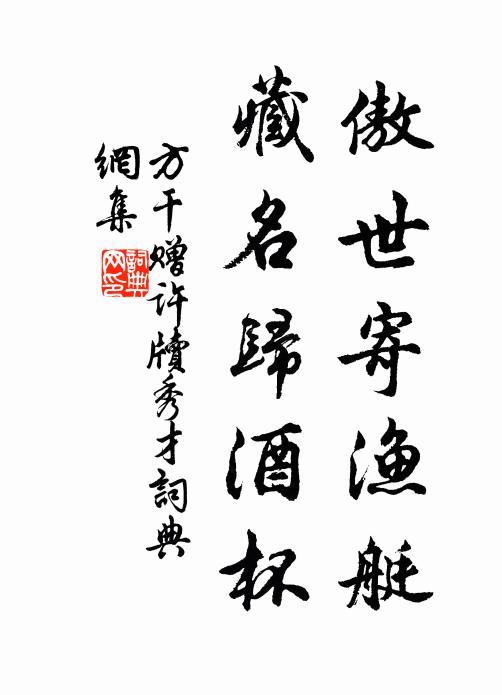 傲世寄漁艇
藏名歸酒杯
方干赠许牘秀才詞典
網集
詞典
网印